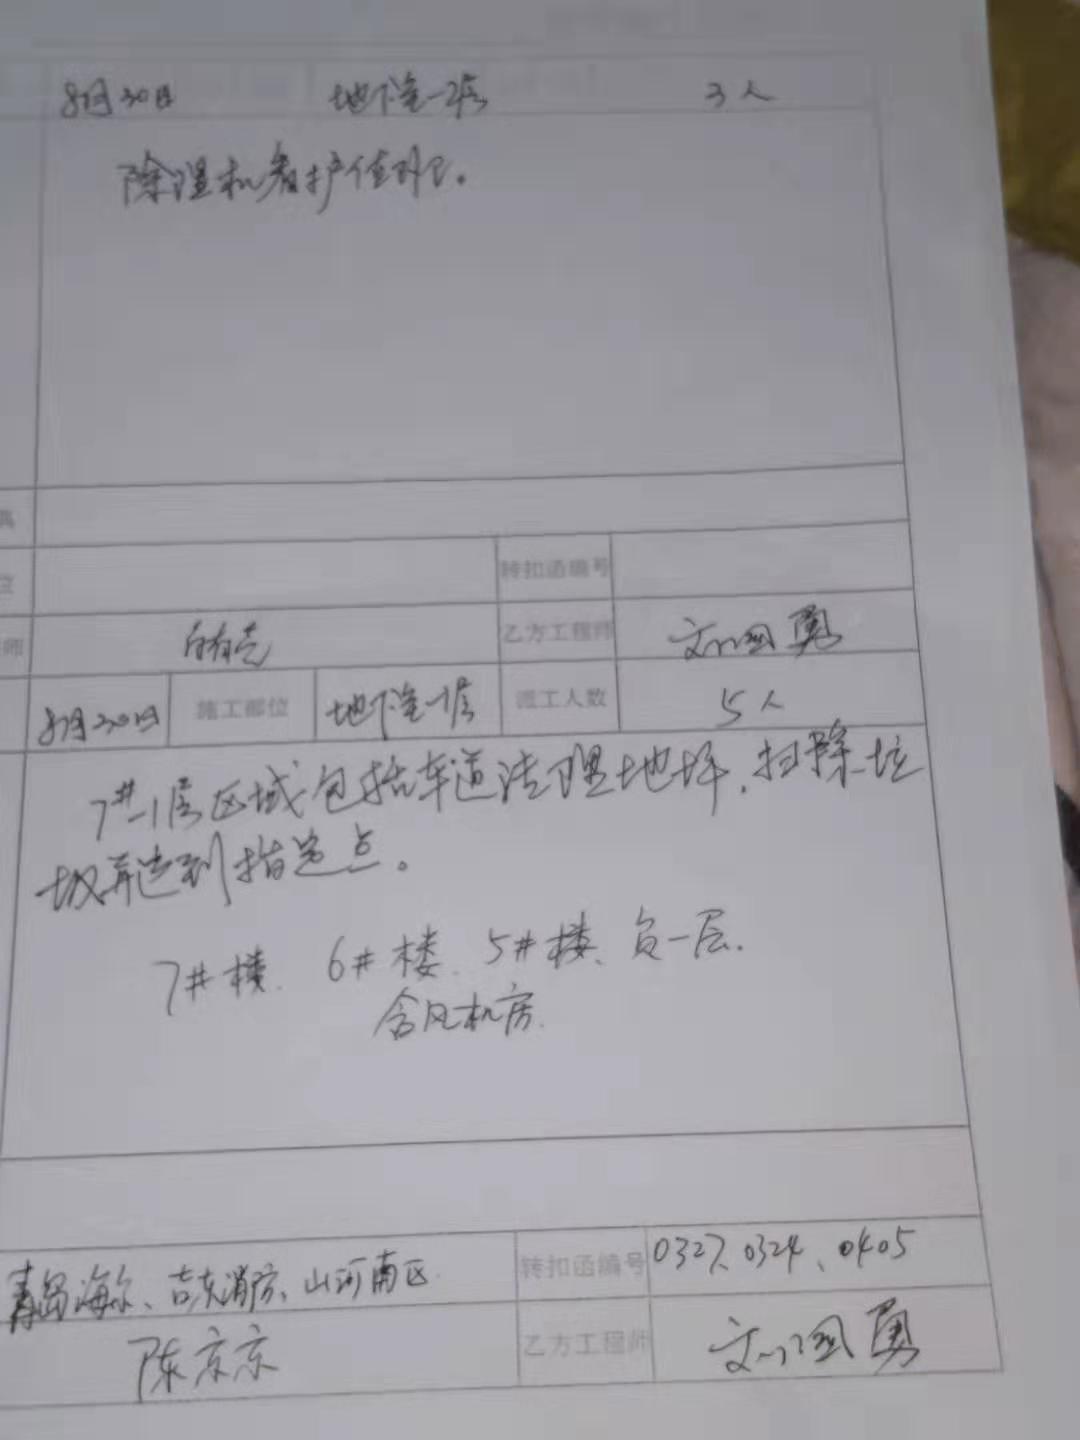 8月30日 地下室一层 3人
除湿机看护值班。
具
位
转扣函编号
师 乙方工程师 刘国勇
8月30日 施工部位 地下室-1层 派工人数 5人
7#-1层区域包括车道清理地坪,扫除垃
圾弄送到指定点。
7#楼. 6#楼、5#楼、负一层.
含风机房.
青岛海尔、吉东消防、山河南区 转扣函编号 0327、0324、0405
陈京京 乙方工程师 刘国勇